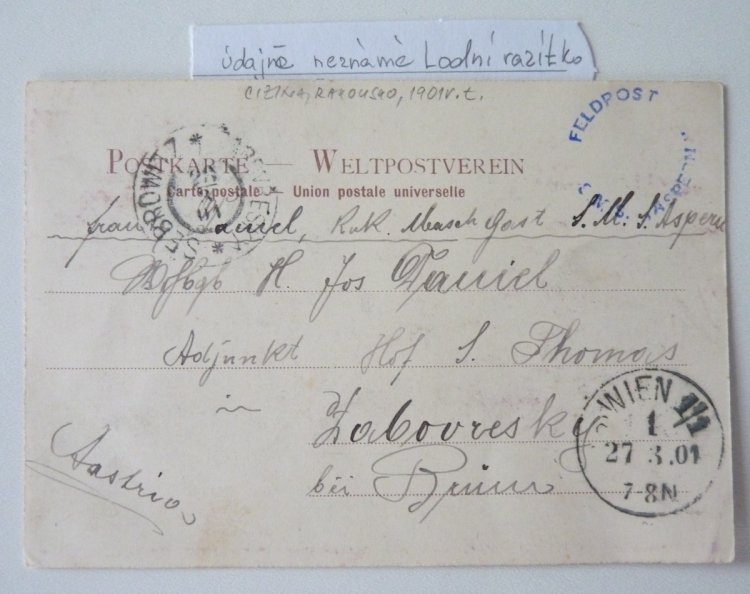 údajně neznámé Lodní razítko
CIZINA, RAKOUSKO, 1901 v. t.
FELDPOST
S.M.S. ASPERN
POSTKARTE — WELTPOSTVEREIN
Carte postale — Union postale universelle
Daniel, K.u.K. Masch Gast S. M. S. Aspern
H. Jos Daniel
Adjunkt Hof S. Thomas
in Zabovresky
bei Brünn
Austria
WIEN 1/1
1
27 3.01
7-8N